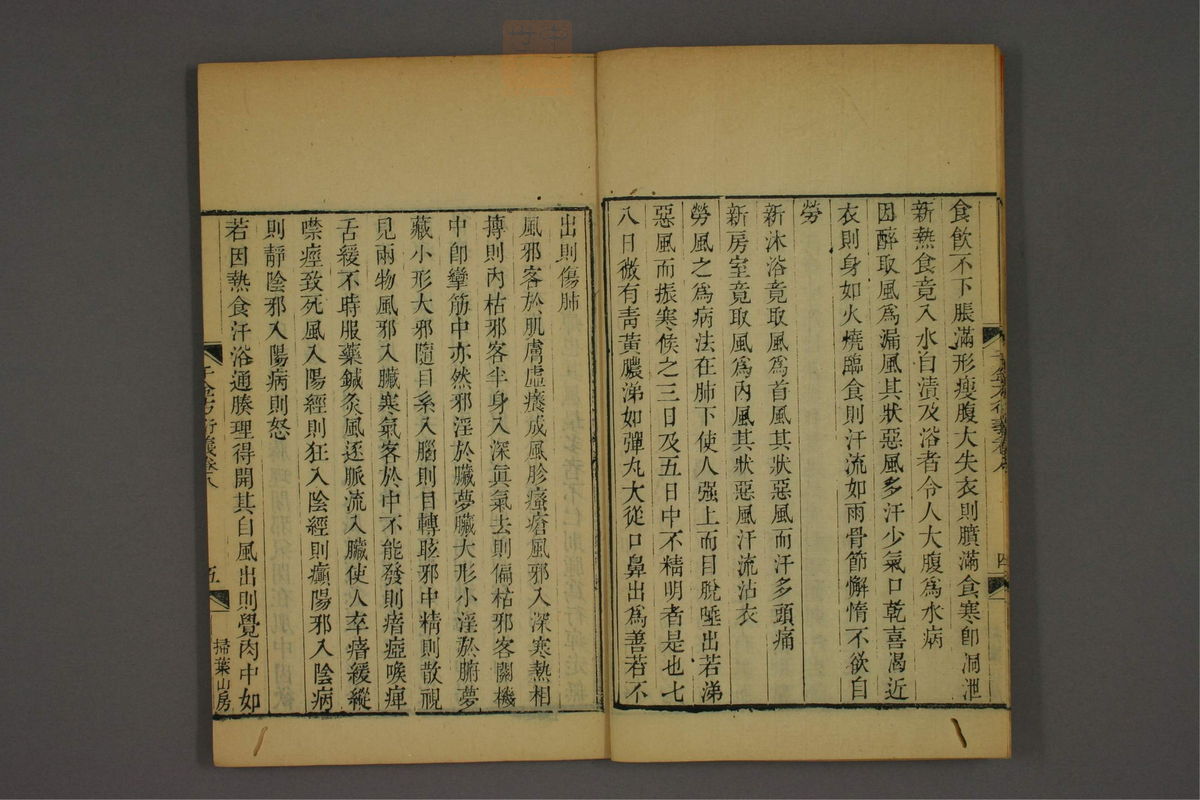 食飲不下脹滿形瘦腹大失衣則䐜滿食寒卽洞泄
新熱食竟入水自漬及浴者令人大腹爲水病
因醉取風爲漏風其狀惡風多汗少氣口乾喜渴近
衣則身如火燒臨食則汗流如雨骨節懈惰不欲自
勞
新沐浴竟取風爲首風其狀惡風而汗多頭痛
新房室竟取風爲內風其狀惡風汗流沾衣
勞風之爲病法在肺下使人强上而目脫唾出若涕
惡風而振寒候之三日及五日中不精明者是也七
八日微有靑黃膿涕如彈丸大從口鼻出爲善若不
四
出則傷肺
風邪客於肌膚虛癢成風胗瘙瘡風邪入深寒熱相
搏則肉枯邪客半身入深眞氣去則偏枯邪客關機
中卽攣筋中亦然邪淫於臟夢臟大形小淫於腑夢
藏小形大邪隨目系入腦則目轉眩邪中精則散視
見兩物風邪入臟寒氣客於中不能發則瘖瘂喉痺
舌緩不時服藥鍼灸風逐脈流入臟使人卒瘖緩縱
噤痙致死風入陽經則狂入陰經則癲陽邪入陰病
則靜陰邪入陽病則怒
若因熱食汗浴通腠理得開其自風出則覺肉中如
千金方衍義卷八
五
掃葉山房